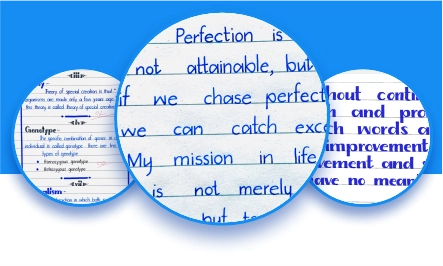 Theory of special creation is that
organisms are made only a few years ago
this theory is called theory of special creation
Genotype-
The specific combination of genes in
individual is called genotype. there are
types of genotype
Homozygous genotype
Heterozygous genotype
Perfection is
not attainable, but
if we chase perfect
we can catch exc
My mission in life
is not merely
but to
hout conti
n and pro
ch words a
improvement
vement and s
ave no mean